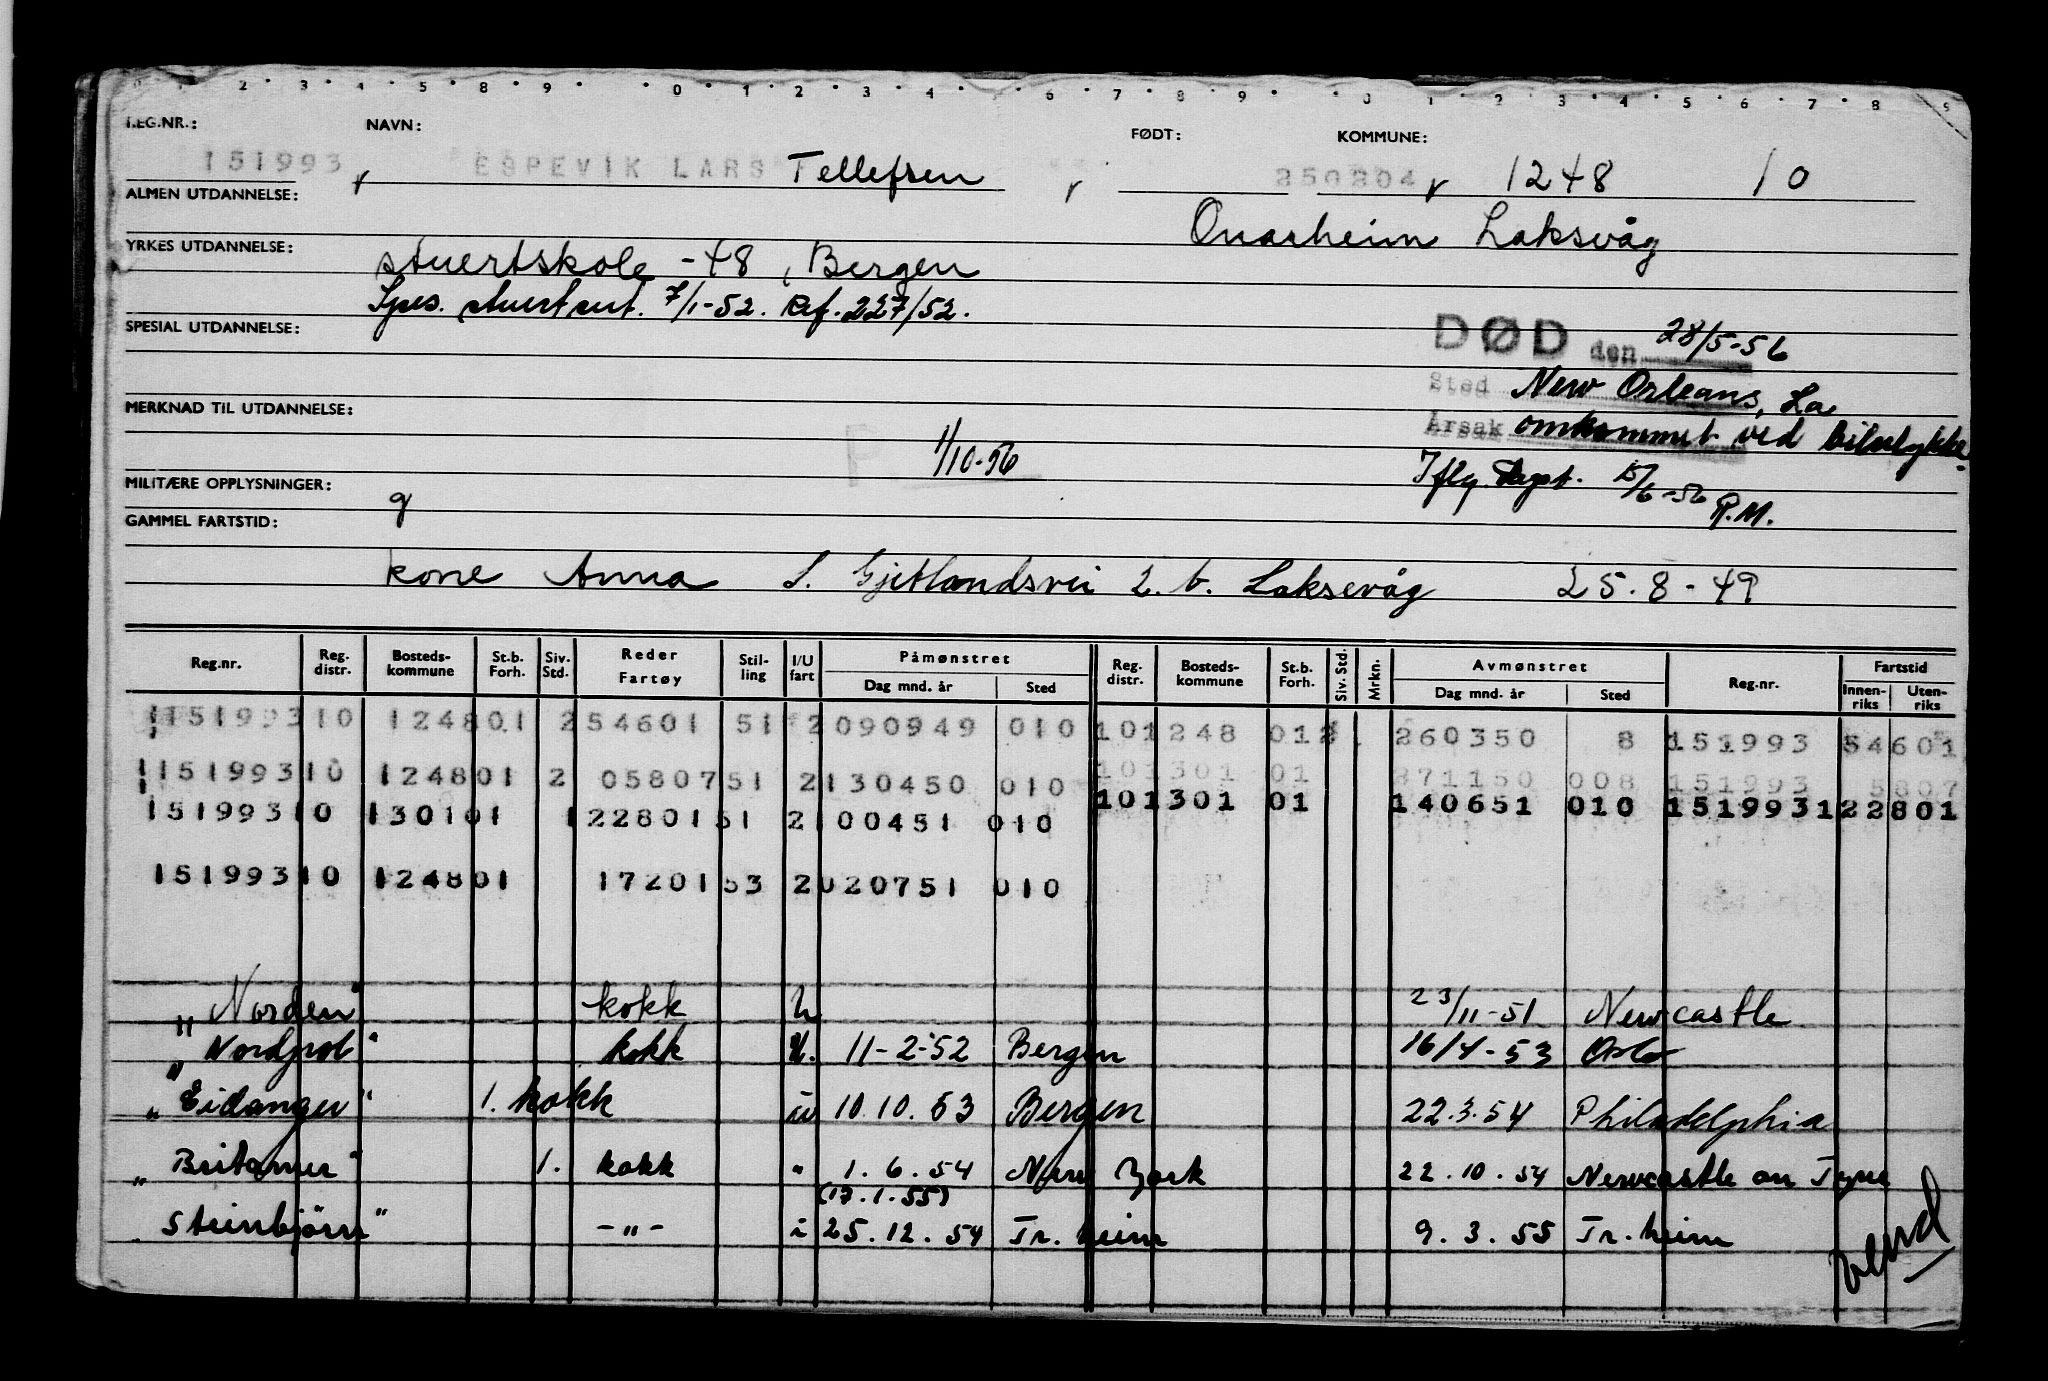 2 3 4 5 8 9 0 1 2 3 4 6 7 8 9 0 1 2 3 4 5 6 7 8 9
REG.NR.: NAVN: FØDT: KOMMUNE:
151993 ESPEVIK LARS Tellefsen 250204 1248 10
ALMEN UTDANNELSE: Onarheim Laksvåg
YRKES UTDANNELSE: stuertskole -48, Bergen
Spes. stuert sert. 7/1-52. Ref. 227/52.
SPESIAL UTDANNELSE:
DØD den 28/5-56
Sted New Orleans, La
MERKNAD TIL UTDANNELSE:
Årsak omkommet ved bilulykke
1/10-56
Iflg. 15/6-56 R.M.
MILITÆRE OPPLYSNINGER: g
GAMMEL FARTSTID:
kone Anna S. Gjetlandsvei 2.b. Laksevåg 25.8-49
Reg.nr. Reg. distr. Bosteds-kommune St.b. Forh. Siv. Std. Reder Fartøy Stil-ling I/U fart Påmønstret Dag mnd. år Sted Reg. distr. Bosteds-kommune St.b. Forh. Siv. Std. Mrkn. Avmønstret Dag mnd. år Sted Reg.nr. Fartstid Innen-riks Uten-riks
151993 10 1248 01 2 54601 51 2 090949 010 10 1248 01 260350 8 151993 54601
151993 10 1248 01 2 05807 51 2 130450 010 10 1301 01 271150 008 151993 5807
151993 10 1301 01 1 22801 51 2 100451 010 10 1301 01 140651 010 151993 122801
151993 10 1248 01 17201 53 2 020751 010
"Norden" kokk u 23/11-51 Newcastle
"Nordpol" kokk U. 11-2-52 Bergen 16/4-53 Oslo
"Eidanger" 1. kokk u 10.10.53 Bergen 22.3.54 Philadelphia
"Britamer" 1. kokk " 1.6.54 New York 22.10.54 Newcastle on Tyne
(17.1.55)
Steinbjørn" -"- i 25.12.54 Tr.heim 9.3.55 Tr.heim
vend